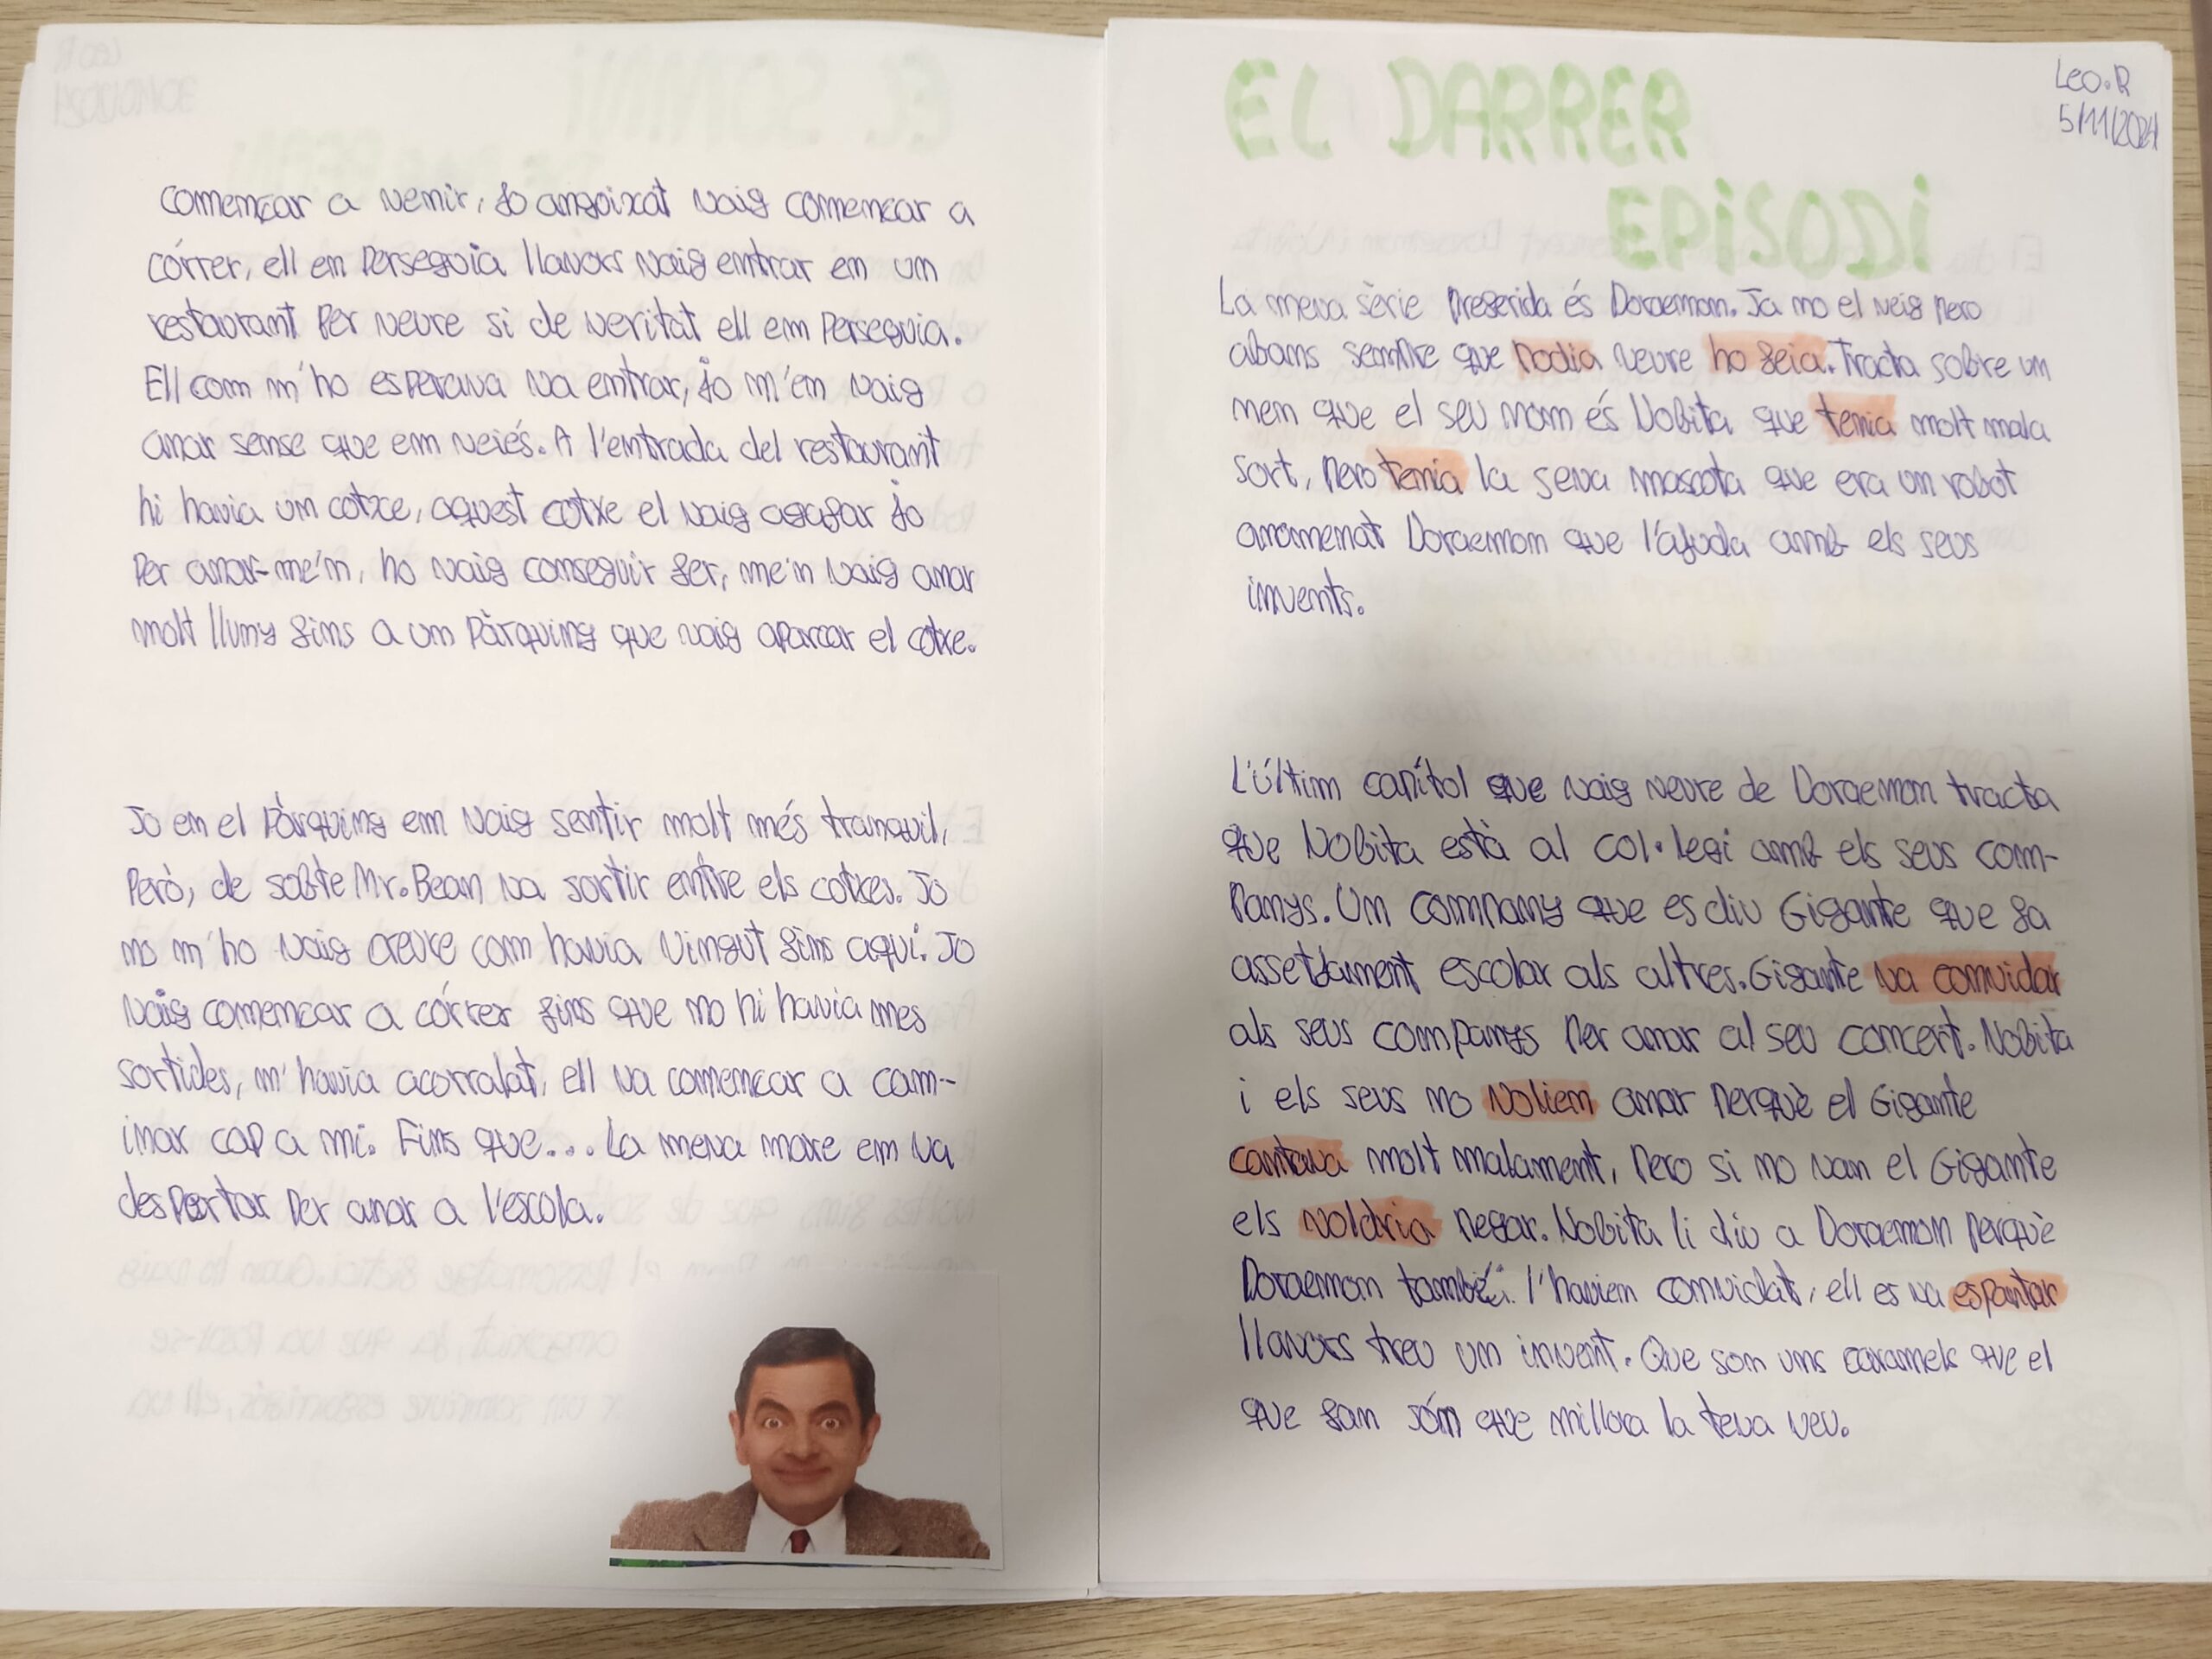 començar a venir, jo angoixat vaig començar a
córrer, ell em perseguia llavors vaig entrar en un
restaurant per veure si de veritat ell em perseguia.
Ell com m'ho esperava va entrar, jo m'en vaig
anar sense que em veiés. A l'entrada del restaurant
hi havia un cotxe, aquest cotxe el vaig agafar jo
per anar-me'n, ho vaig conseguir fer, me'n vaig anar
molt lluny fins a un pàrquing que vaig aparcar el cotxe.
Jo en el pàrquing em vaig sentir molt més tranquil,
Però, de sobte Mr. Bean va sortir entre els cotxes. Jo
no m'ho vaig creure com havia vingut fins aquí. Jo
vaig començar a córrer fins que no hi havia mes
sortides, m'havia acorralat, ell va començar a cam-
inar cap a mi. Fins que... La meva mare em va
despertar per anar a l'escola.
EL DARRER
EPISODI
Leo.R
5/11/2024
La meva sèrie preferida és Doraemon. Ja no el veig pero
abans sempre que podia veure ho feia. Tracta sobre un
nen que el seu nom és Nobita que tenia molt mala
sort, pero tenia la seva mascota que era un robot
anomenat Doraemon que l'ajuda amb els seus
invents.
L'últim capítol que vaig veure de Doraemon tracta
que Nobita està al col·legi amb els seus com-
panys. Un company que es diu Gigante que fa
assetjament escolar als altres. Gigante va convidar
als seus companys per anar al seu concert. Nobita
i els seus no voliem anar perquè el Gigante
cantava molt malament, pero si no van el Gigante
els voldria pegar. Nobita li diu a Doraemon perquè
Doraemon també l'haviem convidat, ell es va espantar
llavors treu un invent. Que son uns caramels que el
que fan són que millora la teva veu.